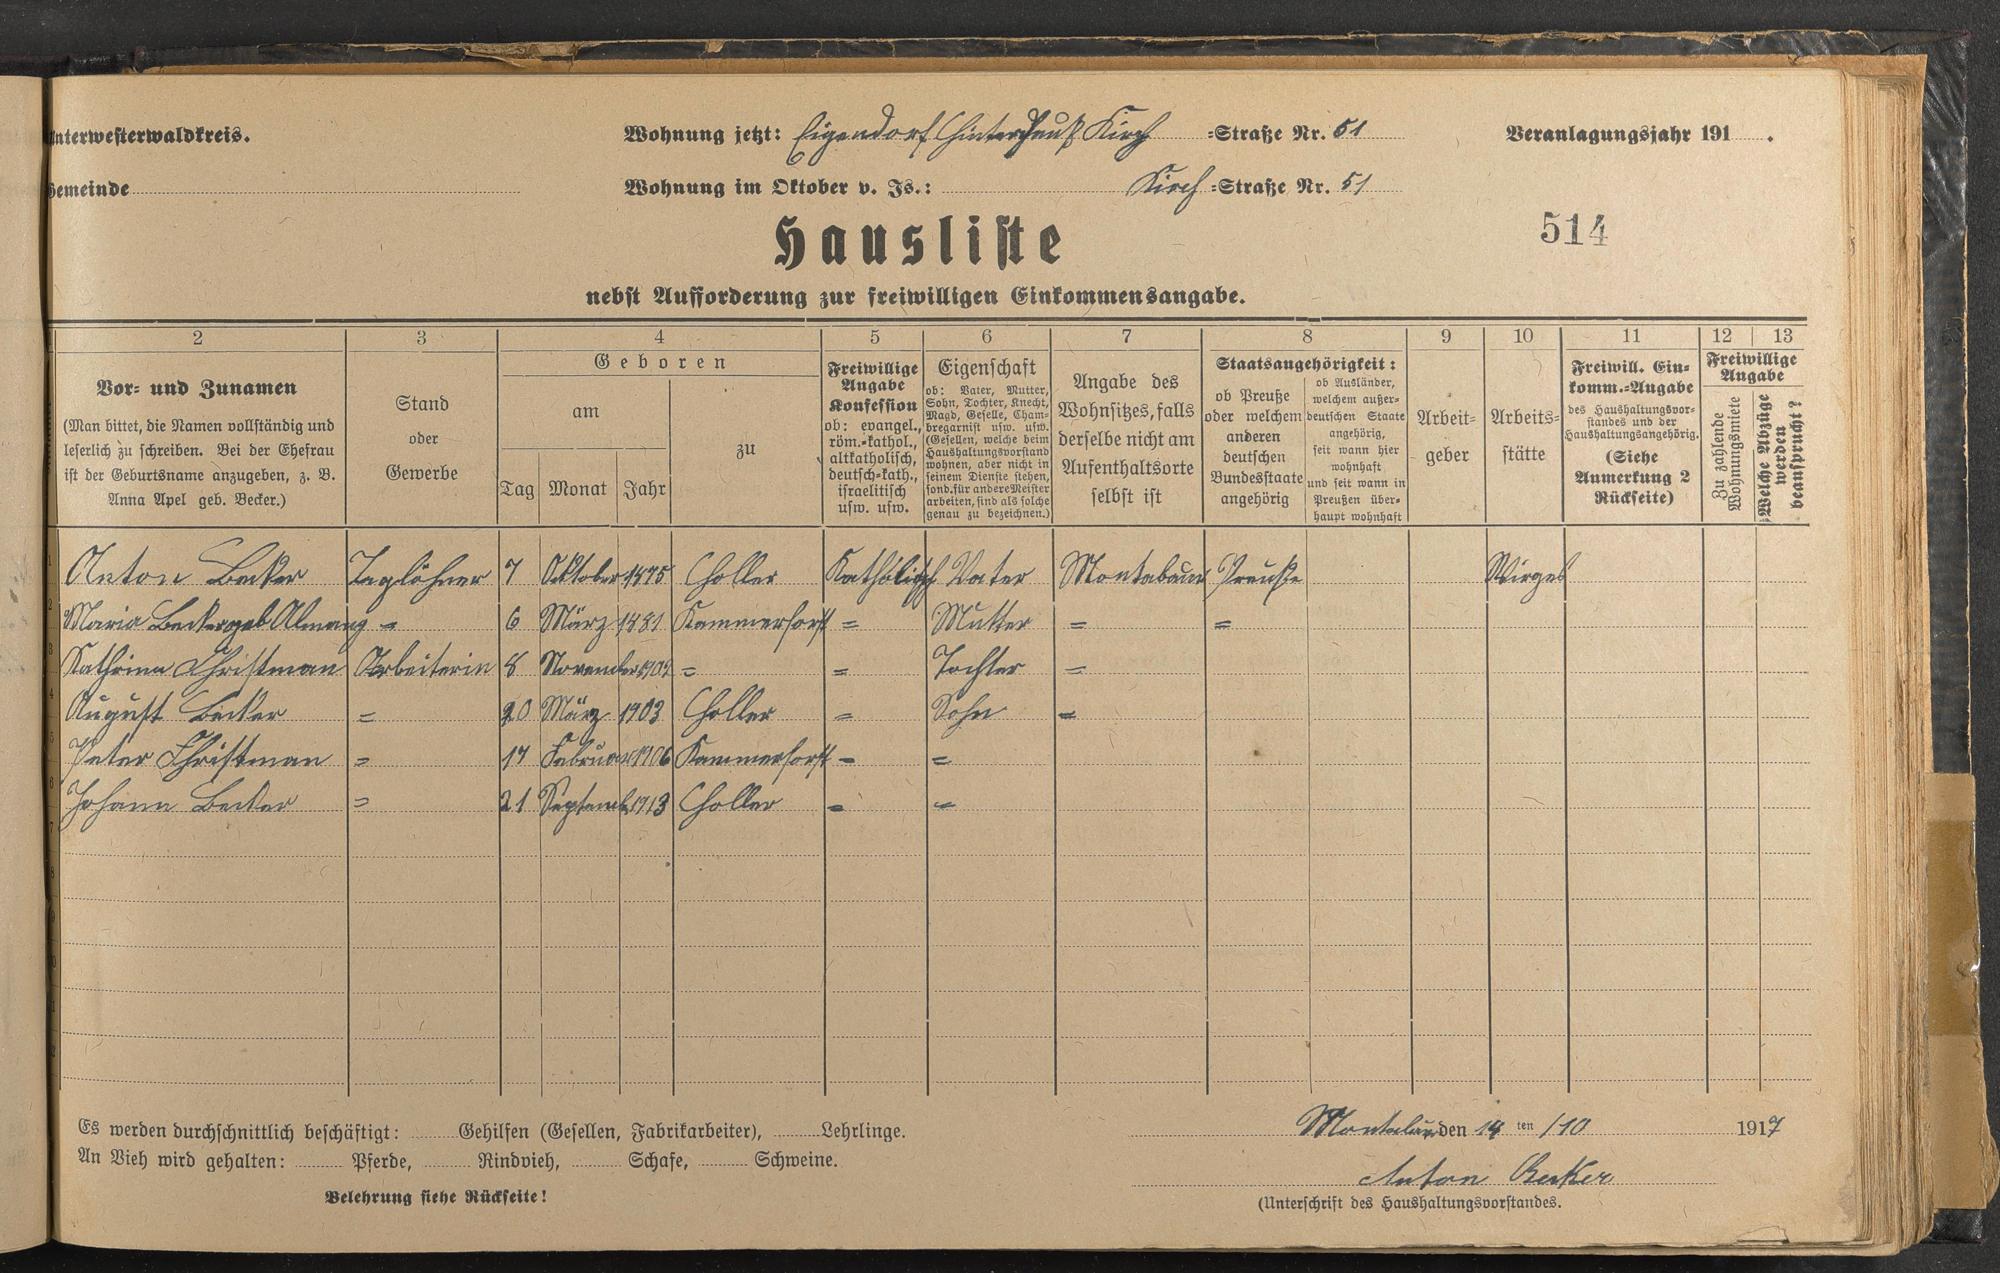 Unterwesterwaldkreis.
Wohnung jetzt: Eigendorf Hinterhauß Kirch =Straße Nr. 51
Veranlagungsjahr 191 .
Gemeinde
Wohnung im Oktober v. Js.: Kirch =Straße Nr. 51
Hausliste
514
nebst Aufforderung zur freiwilligen Einkommensangabe.
2 3 4 5 6 7 8 9 10 11 12 13
Vor- und Zunamen
(Man bittet, die Namen vollständig und
leserlich zu schreiben. Bei der Ehefrau
ist der Geburtsname anzugeben, z. B.
Anna Apel geb. Becker.)
Stand
oder
Gewerbe
Geboren
am
zu
Tag Monat Jahr
Freiwillige
Angabe
Konfession
ob: evangel.,
röm.-kathol.,
altkatholisch,
deutsch-kath.,
israelitisch
usw. usw.
Eigenschaft
ob: Vater, Mutter,
Sohn, Tochter, Knecht,
Magd, Geselle, Cham-
bregarnist usw. usw.
(Gesellen, welche beim
Haushaltungsvorstand
wohnen, aber nicht in
seinem Dienste stehen,
sond. für andere Meister
arbeiten, sind als solche
genau zu bezeichnen.)
Angabe des
Wohnsitzes, falls
derselbe nicht am
Aufenthaltsorte
selbst ist
Staatsangehörigkeit:
ob Preuße
oder welchem
anderen
deutschen
Bundesstaate
angehörig
ob Ausländer,
welchem außer-
deutschen Staate
angehörig,
seit wann hier
wohnhaft
und seit wann in
Preußen über-
haupt wohnhaft
Arbeit-
geber
Arbeits-
stätte
Freiwill. Ein-
komm.-Angabe
des Haushaltungsvor-
standes und der
Haushaltungsangehörig.
(Siehe
Anmerkung 2
Rückseite)
Freiwillige
Angabe
Zu zahlende
Wohnungsmiete
Welche Abzüge
werden
beansprucht?
1 Anton Becker Taglöhner 7 Oktober 1875 Holler Katholisch Vater Montabaur Preuße Wirges
2 Maria Becker geb Almang = 6 März 1881 Kammerforst = Mutter = =
3 Kathrina Christman Arbeiterin 8 November 1902 = = Tochter =
4 August Becker = 20 März 1903 Holler = Sohn =
5 Peter Christman = 17 Februar 1906 Kammerforst = =
6 Johann Becker = 21 Septemb. 1913 Holler = =
7
8
Es werden durchschnittlich beschäftigt: Gehilfen (Gesellen, Fabrikarbeiter), Lehrlinge.
An Vieh wird gehalten: Pferde, Rindvieh, Schafe, Schweine.
Belehrung siehe Rückseite!
Montabaur den 14 ten /10 1917
Anton Becker
(Unterschrift des Haushaltungsvorstandes.